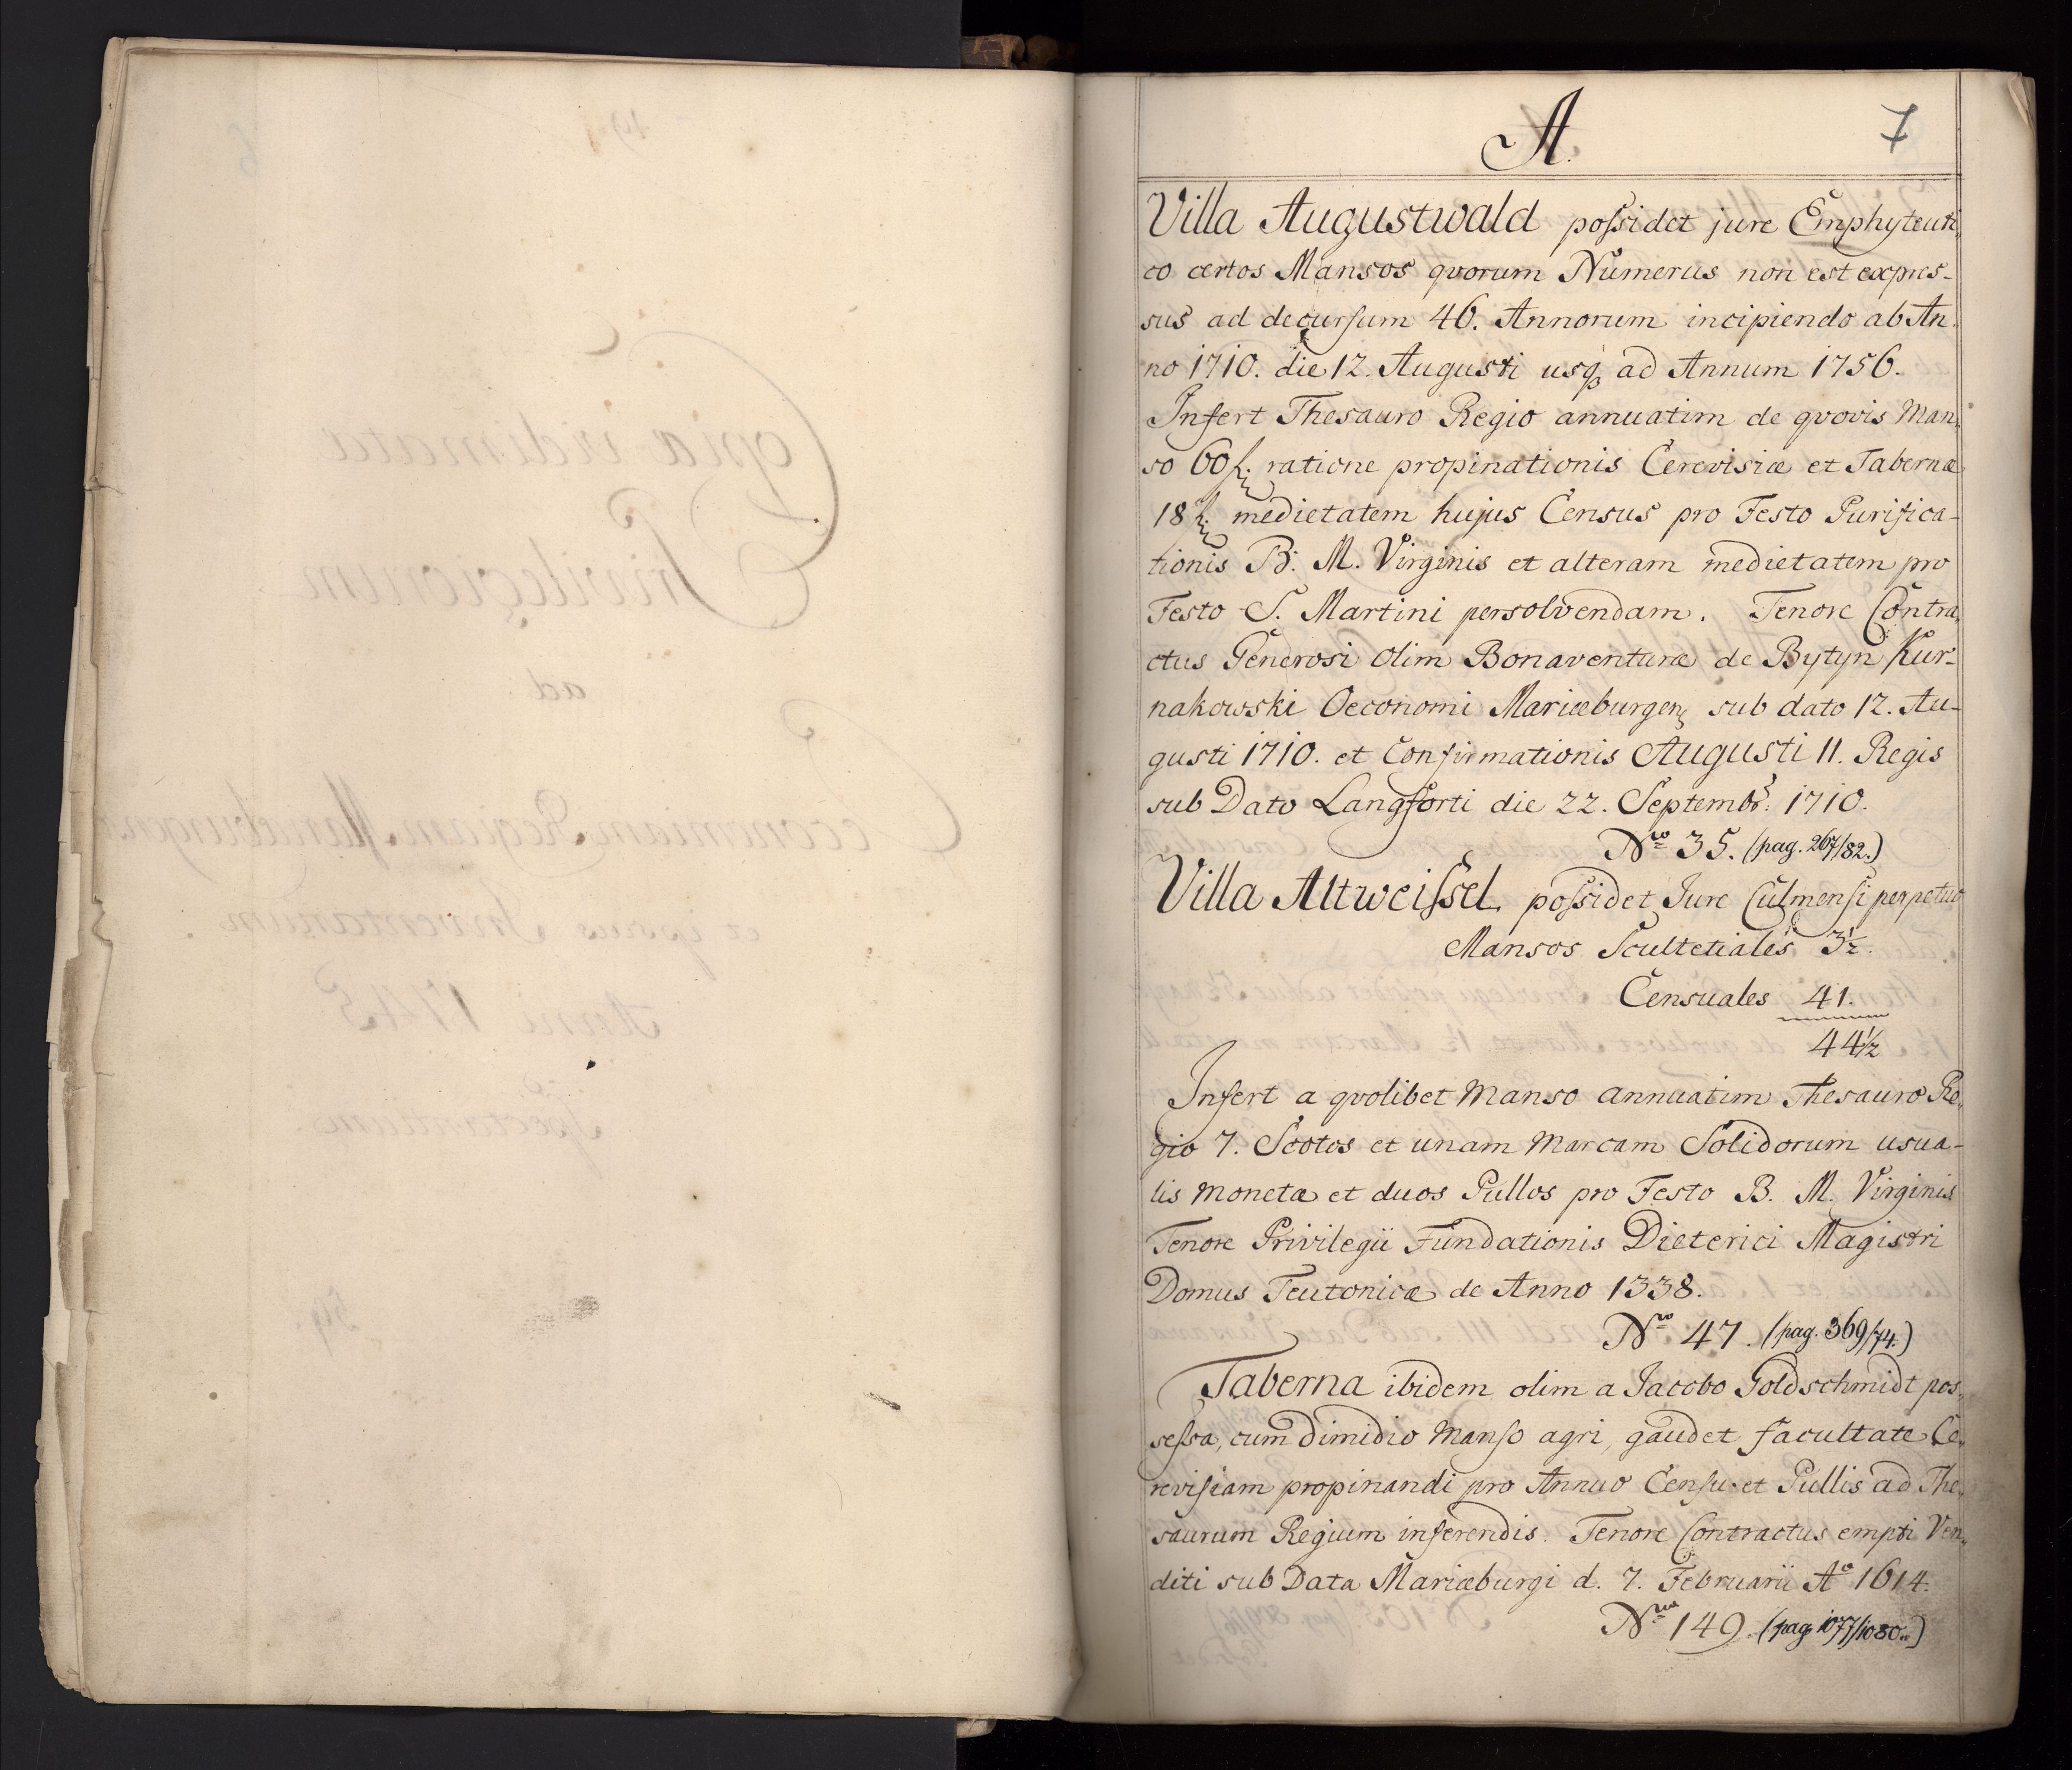 A.
7
Villa Augustwald possidet jure Emphyteuti„
co certos Mansos quorum Numerus non est expres-
sus ad decursum 46. Annorum incipiendo ab An„
no 1710. die 12. Augusti usq3 ad Annum 1756.
Infert Thesauro Regio annuatim de qvovis Man„
so 60 fl. ratione propinationis Cerevisiæ et Tabernæ
18 fl. medietatem hujus Census pro Festo Purifica-
tionis B. M. Virginis et alteram medietatem pro
Festo S. Martini persolvendam. Tenore Contra„
ctus Generosi olim Bonaventuræ de Bytyn Kur-
nakowski Oeconomi Mariæburgen, sub dato 12. Au-
gusti 1710. et Confirmationis Augusti II. Regis
sub Dato Langforti die 22. Septembr. 1710.
Nro 35. (pag. 267/82.)
Villa Altweissel possidet Jure Culmensi perpetuo
Mansos Scultetiales 3½.
Censuales 41.
44½
Infert a qvolibet Manso annuatim Thesauro Re„
gio 7. Scotos et unam Marcam Solidorum usua-
lis Monetæ et duos Pullos pro Festo B. M. Virginis
Tenore Privilegii Fundationis Dieterici Magistri
Domus Teutonicæ de Anno 1338.
Nro 47. (pag. 369/74.)
Taberna ibidem olim a Jacobo Goldschmidt pos„
sessa, cum dimidio Manso agri, gaudet facultate Ce„
revisiam propinandi pro Annuo Censu et Pullis ad The„
saurum Regium inferendis. Tenore Contractus empti Ven„
diti sub Data Mariæburgi d. 7. Februarii Ao 1614.
Nro 149. (pag. 1077/1080.)